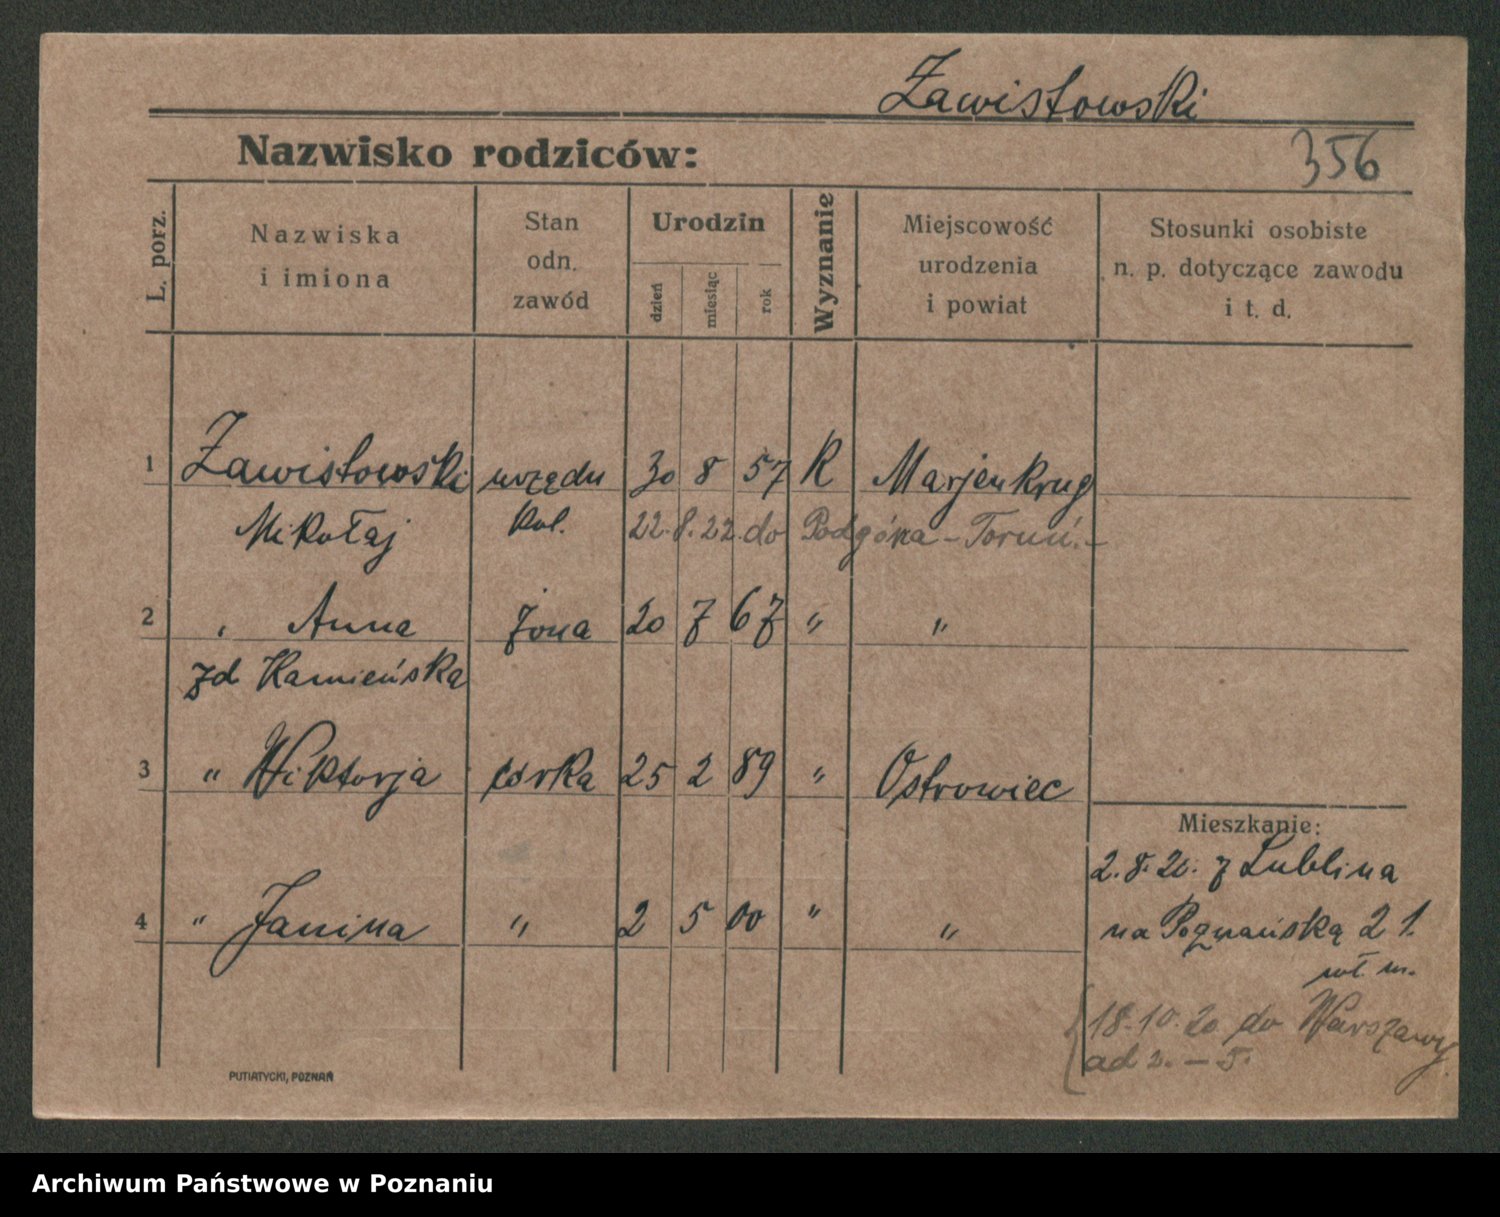 Zawistowski
Nazwisko rodziców:
356
L. porz.
Nazwiska
i imiona
Stan
odn.
zawód
Urodzin
dzień
miesiąc
rok
Wyznanie
Miejscowość
urodzenia
i powiat
Stosunki osobiste
n. p. dotyczące zawodu
i t. d.
1 Zawistowski urzędn 30 8 57 R Marjenkrug
Mikołaj kol. 22.8.22. do Podgórza - Toruń. -
2 " Anna żona 20 7 67 " "
zd Kamieńska
3 " Wiktorja córka 25 2 89 " Ostrowiec
4 " Janina " 2 5 00 " "
Mieszkanie:
2.8.20. z Lublina
na Poznańską 21.
wł. m.
18.10.20 do Warszawy
ad 2. - 5.
PUTIATYCKI, POZNAŃ
Archiwum Państwowe w Poznaniu